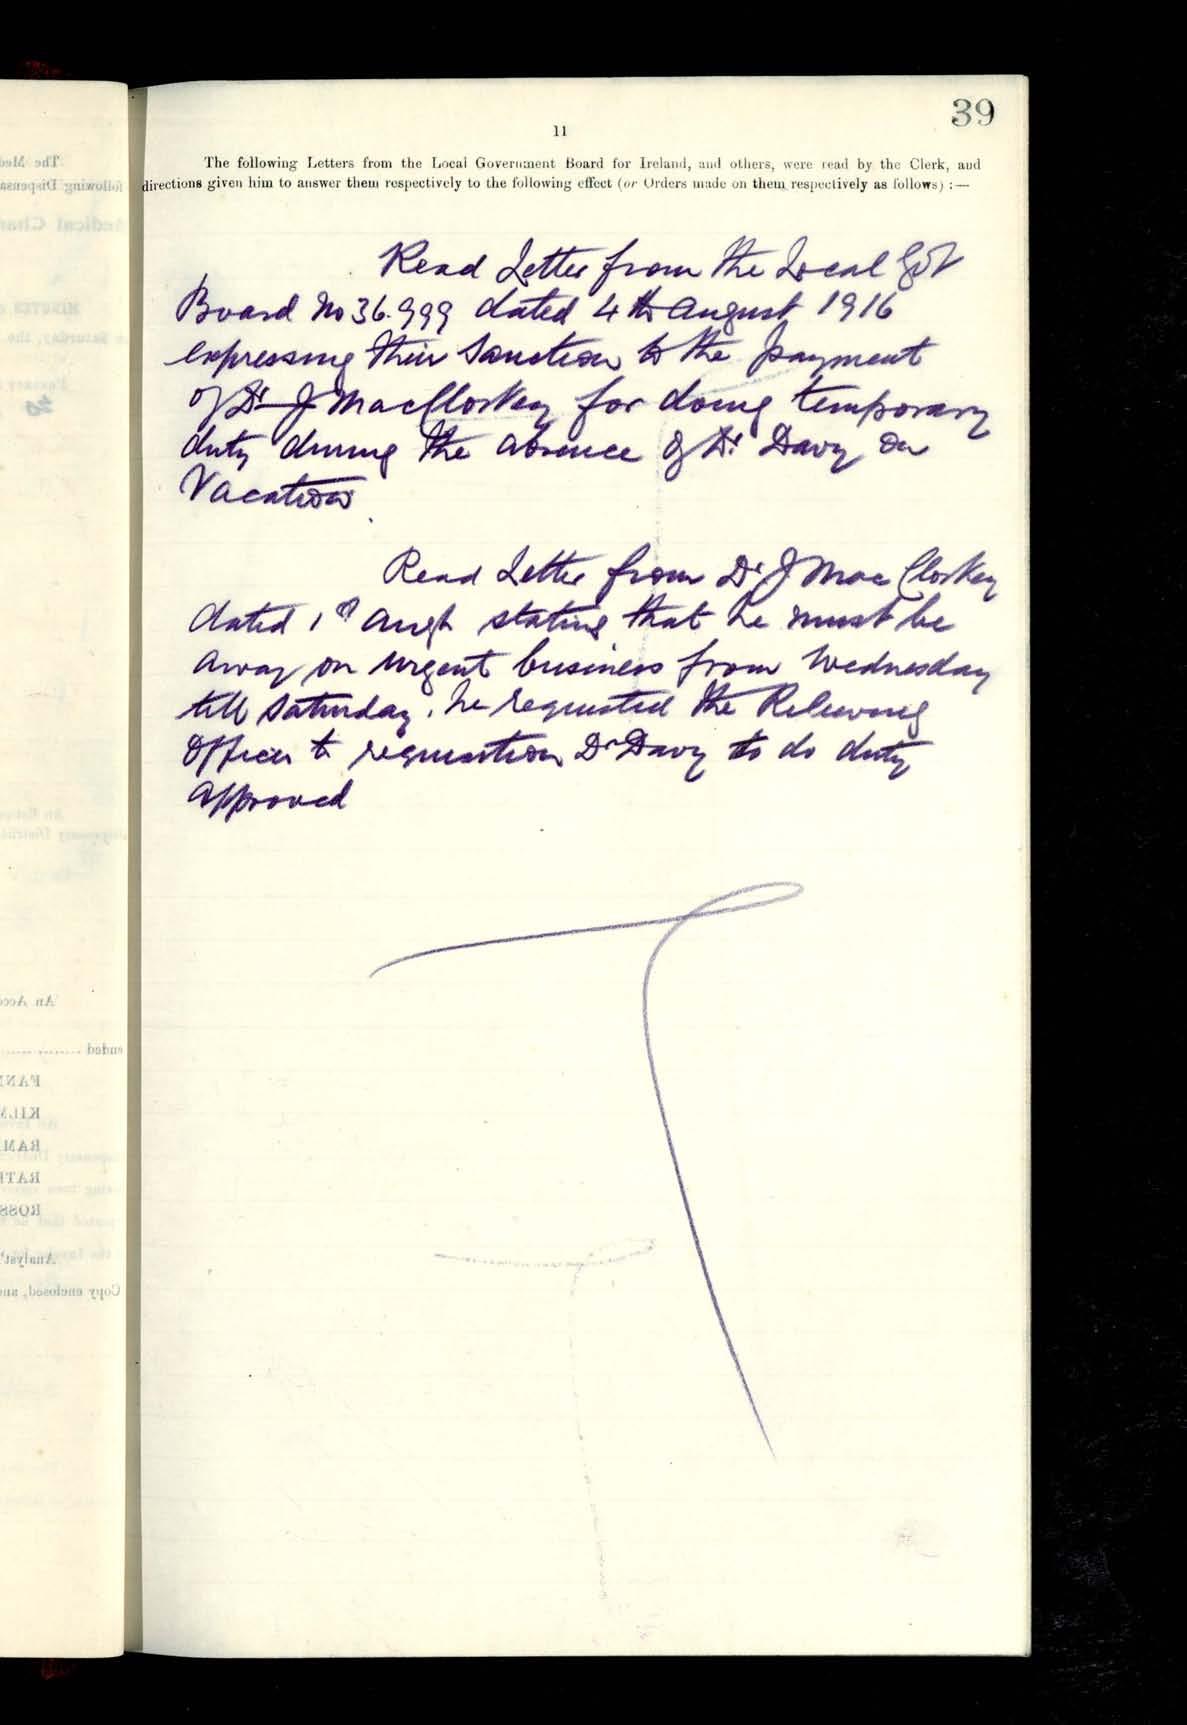 39
11
The following Letters from the Local Government Board for Ireland, and others, were read by the Clerk, and
directions given him to answer them respectively to the following effect (or Orders made on them respectively as follows) :—
Read Letter from the Local Govt
Board No 36.999 dated 4th August 1916
expressing their Sanction to the payment
of Dr J MacCloskey for doing temporary
duty during the absence of Dr Davy on
Vacation
Read Letter from Dr J MacCloskey
dated 1st Augt stating that he must be
away on urgent business from Wednesday
till Saturday. he requested the Relieving
Officer to requisition Dr Davy to do duty
Approved